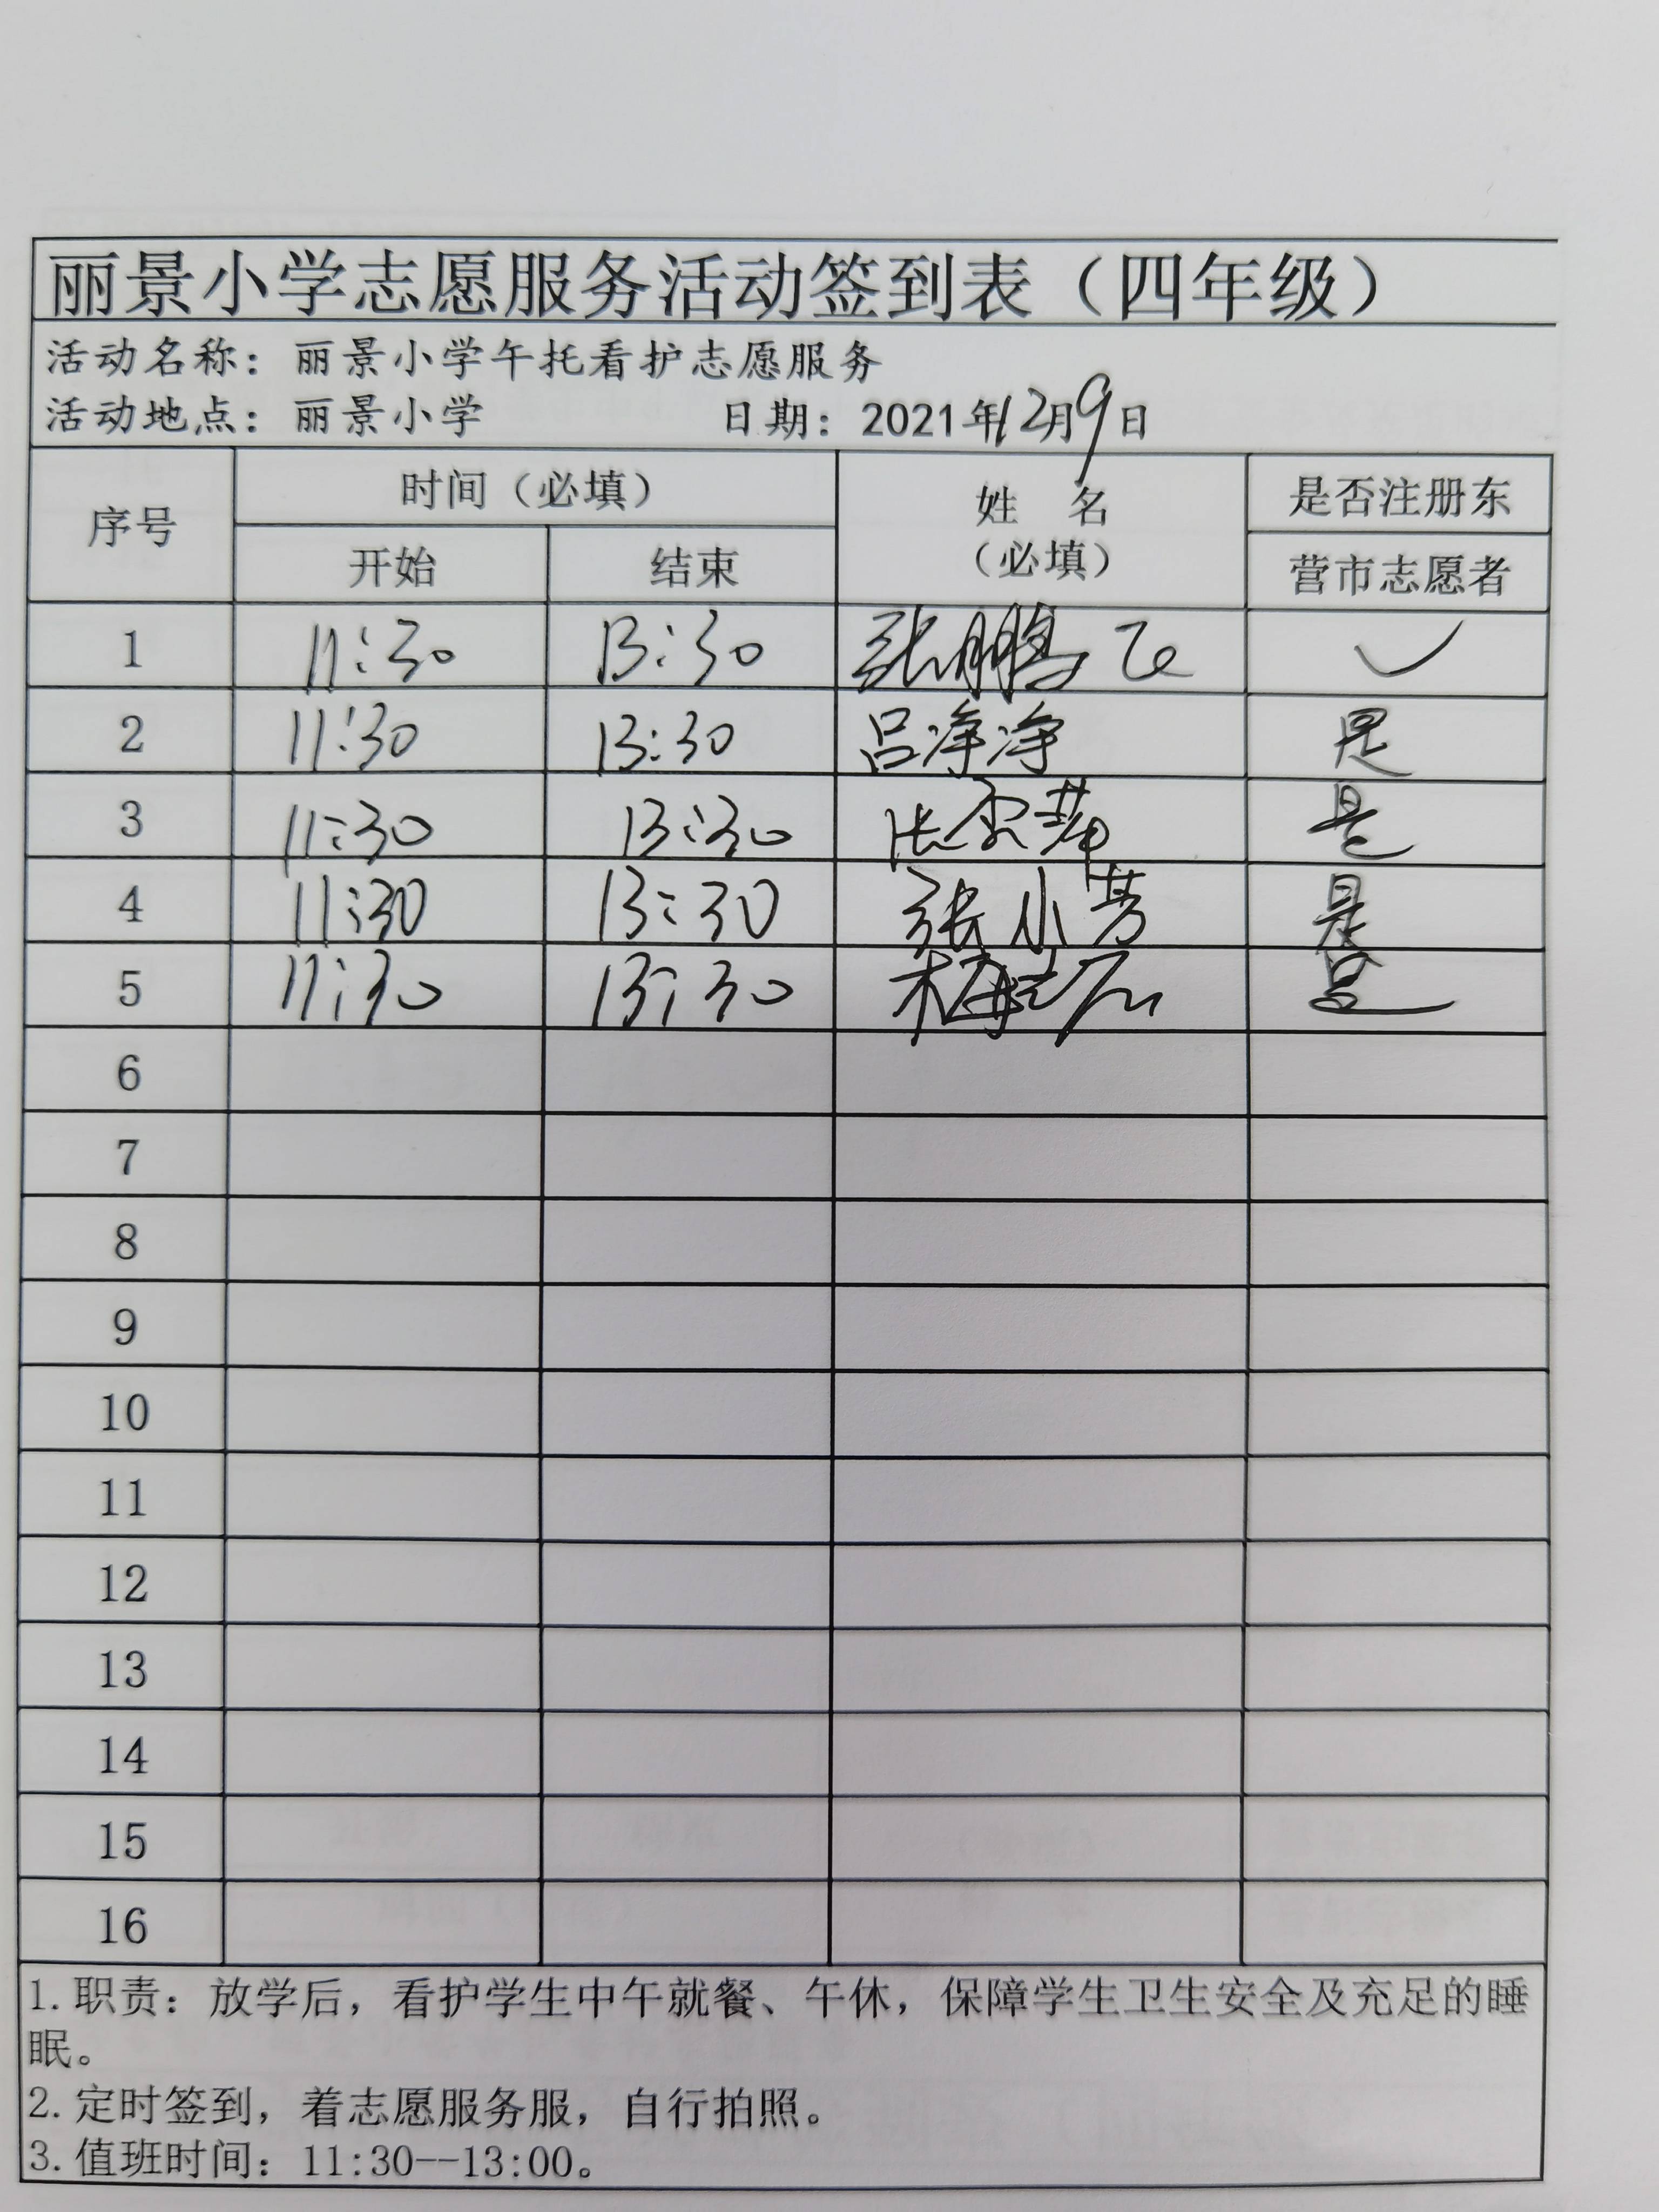 丽景小学志愿服务活动签到表（四年级）
活动名称：丽景小学午托看护志愿服务
活动地点：丽景小学 日期：2021年12月9日
序号 时间（必填） 姓 名 是否注册东
开始 结束 （必填） 营市志愿者
1 11:30 13:30 张鹏飞 ✓
2 11:30 13:30 吕净净 是
3 11:30 13:30 是
4 11:30 13:30 张小芳 是
5 11:30 13:30 梅 是
6
7
8
9
10
11
12
13
14
15
16
1.职责：放学后，看护学生中午就餐、午休，保障学生卫生安全及充足的睡
眠。
2.定时签到，着志愿服务服，自行拍照。
3.值班时间：11:30--13:00。